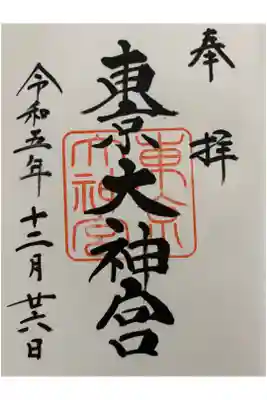 奉拝
東京大神宮
東京大神宮
令和五年十二月廿六日